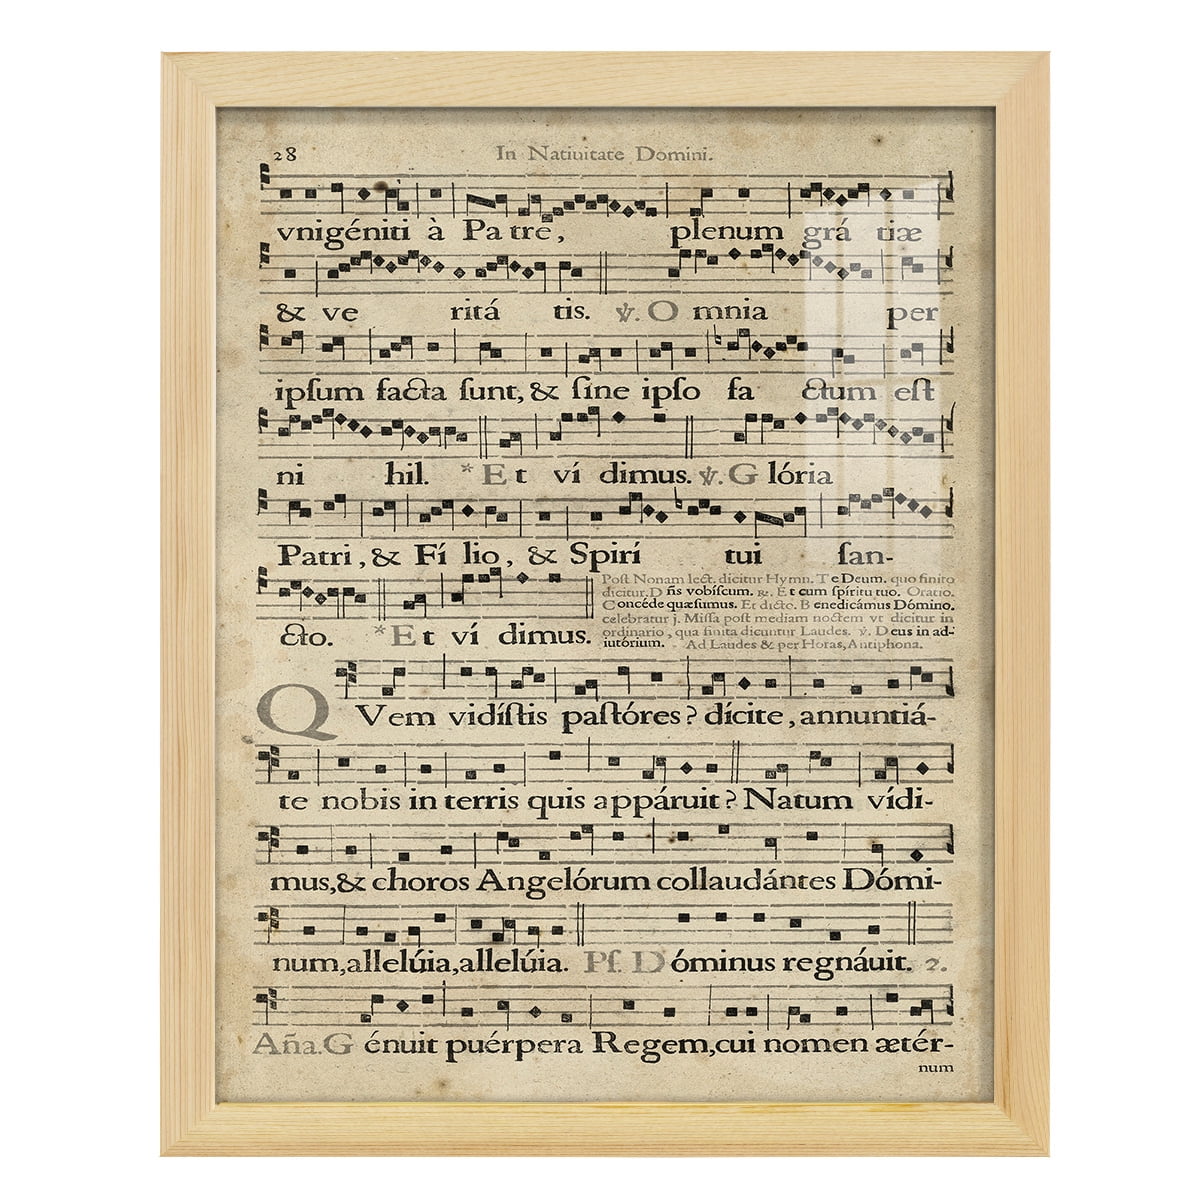 28 In Natiuitate Domini.
vnigéniti à Pa tre, plenum grá tiæ
& ve ritá tis. ℣. O mnia per
ipſum facta ſunt, & ſine ipſo fa ctum eſt
ni hil. *Et ví dimus. ℣. G lória
Patri, & Fí lio, & Spirí tui ſan-
cto. *Et ví dimus.
Poſt Nonam lect. dicitur Hymn. Te Deum. quo finito
dicitur. D ñs vobíſcum. ℞. Et cum ſpíritu tuo. Oratio.
Concéde quæſumus. Et dicto. B enedicámus Dómino.
celebratur j. Miſſa poſt mediam noctem vt dicitur in
ordinario, qua finita dicuntur Laudes. ℣. D eus in ad-
iutórium. Ad Laudes & per Horas, Antiphona.
QVem vidíſtis paſtóres? dícite, annuntiá-
te nobis in terris quis appáruit? Natum vídi-
mus, & choros Angelórum collaudántes Dómi-
num, allelúia, allelúia. Pſ. Dóminus regnáuit. 2.
Aña. G énuit puérpera Regem, cui nomen ætér-
num